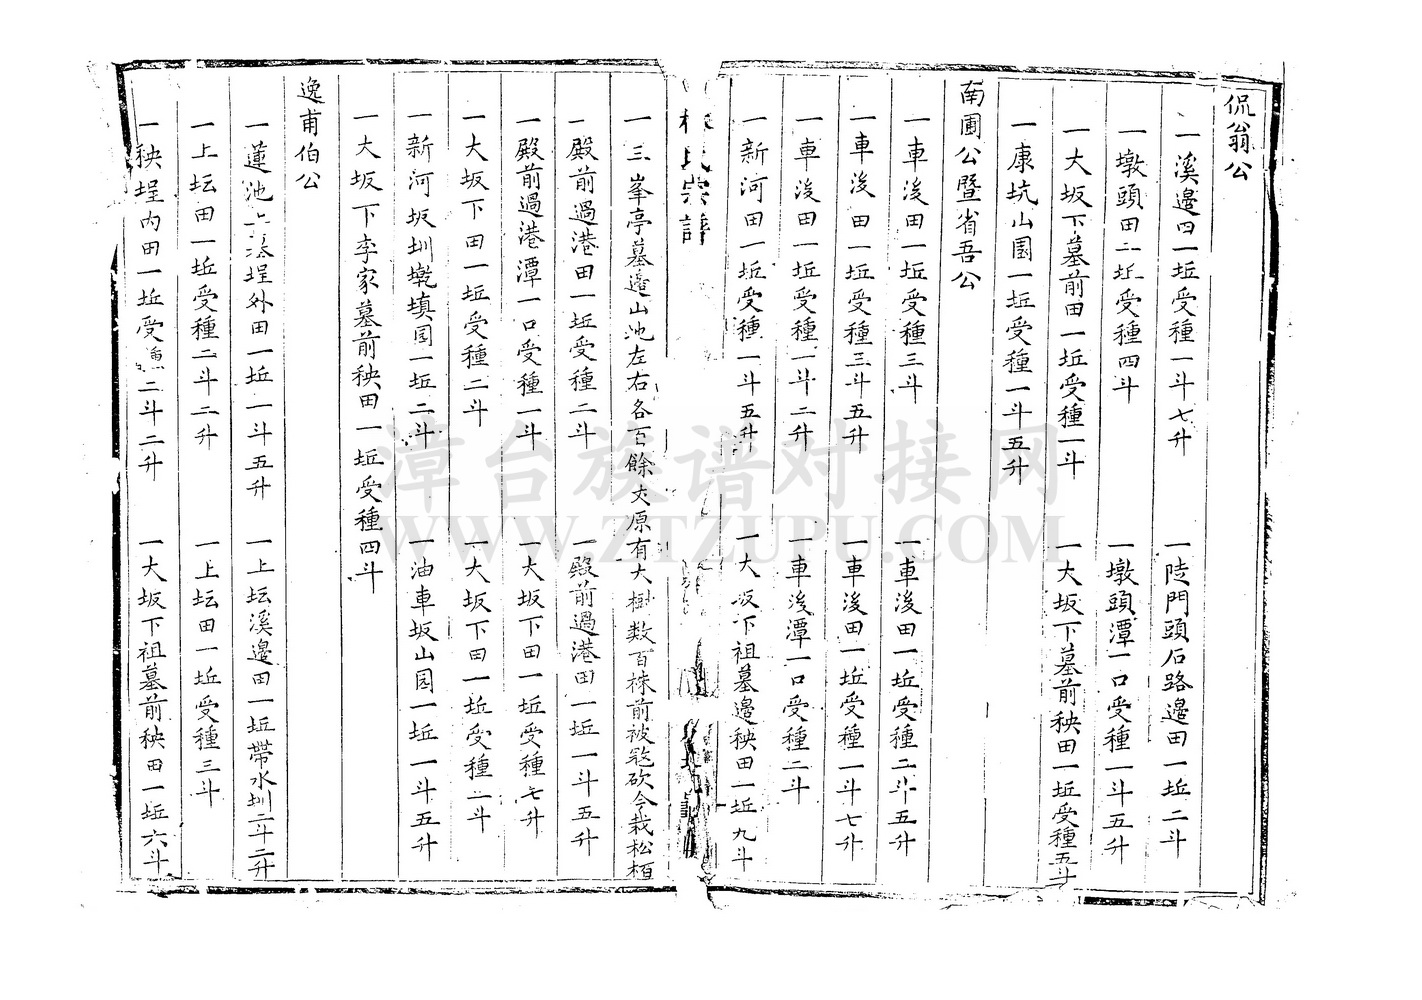 侃翁公
一溪邊田一坵受種一斗七升　一陡門頭石路邊田一坵二斗
一墩頭田二坵受種四斗　一墩頭潭一口受種一斗五升
一大坂下墓前田一坵受種一斗　一大坂下墓前秧田一坵受種五斗
一康坑山園一坵受種一斗五升
南圃公暨省吾公
一車後田一坵受種三斗　一車後田一坵受種二斗五升
一車後田一坵受種三斗五升　一車後田一坵受種一斗七升
一車後田一坵受種一斗二升　一車後潭一口受種二斗
一新河田一坵受種一斗五升　一大坂下祖墓邊秧田一坵九斗
氏宗譜
一三峯亭墓邊山池左右各百餘丈原有大樹数百株前被冦砍今栽松栢
一殿前過港田一坵受種二斗　一殿前過港田一坵一斗五升
一殿前過港潭一口受種一斗　一大坂下田一坵受種七升
一大坂下田一坵受種二斗　一大坂下田一坵受種二斗
一新河坂圳墘填园一坵二斗　一油車坂山园一坵一斗五升
一大坂下李家墓前秧田一坵受種四斗
逸甫伯公
一蓮池墓埕外田一坵一斗五升　一上坛溪邊田一坵帶水圳二斗二升
一上坛田一坵受種二斗二升　一上坛田一坵受種三斗
一秧埕内田一坵受種二斗二升　一大坂下祖墓前秧田一坵六斗
漳台族谱对接网
WWW.ZTZUPU.COM